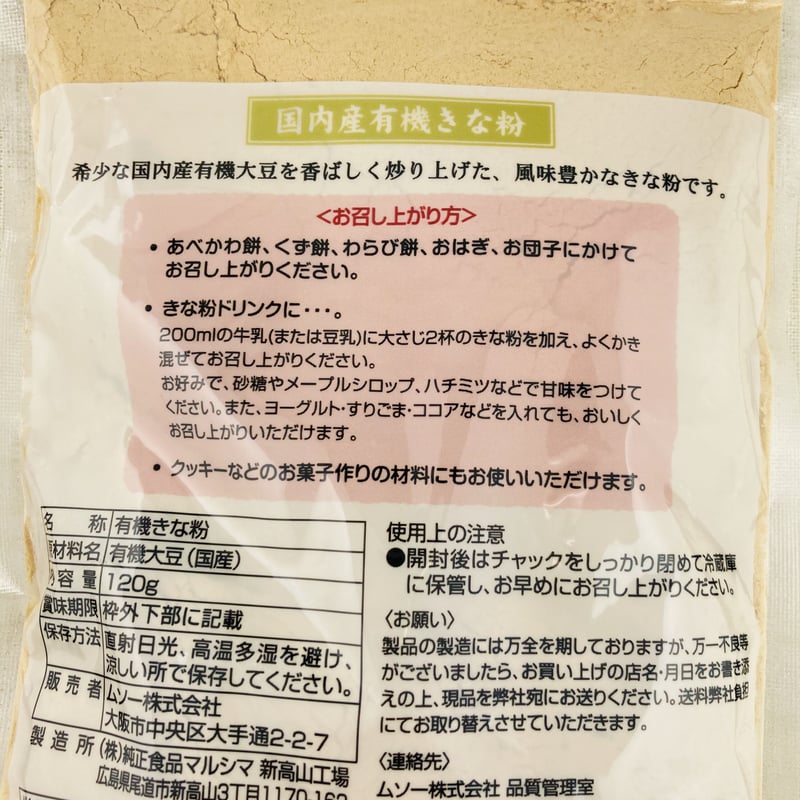 国内産有機きな粉
希少な国内産有機大豆を香ばしく炒り上げた、風味豊かなきな粉です。
<お召し上がり方>
• あべかわ餅、くず餅、わらび餅、おはぎ、お団子にかけて
お召し上がりください。
• きな粉ドリンクに・・・。
200mlの牛乳(または豆乳)に大さじ2杯のきな粉を加え、よくかき
混ぜてお召し上がりください。
お好みで、砂糖やメープルシロップ、ハチミツなどで甘味をつけて
ください。また、ヨーグルト・すりごま・ココアなどを入れても、おいしく
お召し上がりいただけます。
• クッキーなどのお菓子作りの材料にもお使いいただけます。
名称 有機きな粉
原材料名 有機大豆(国産)
内容量 120g
賞味期限 枠外下部に記載
保存方法 直射日光、高温多湿を避け、
涼しい所で保存してください。
販売者 ムソー株式会社
大阪市中央区大手通2-2-7
製造所 (株)純正食品マルシマ 新高山工場
広島県尾道市新高山3丁目1170-162
使用上の注意
●開封後はチャックをしっかり閉めて冷蔵庫
に保管し、お早めにお召し上がりください。
〈お願い〉
製品の製造には万全を期しておりますが、万一不良等
がございましたら、お買い上げの店名・月日をお書き添
えの上、現品を弊社宛にお送りください。送料弊社負担
にてお取り替えさせていただきます。
〈連絡先〉
ムソー株式会社 品質管理室